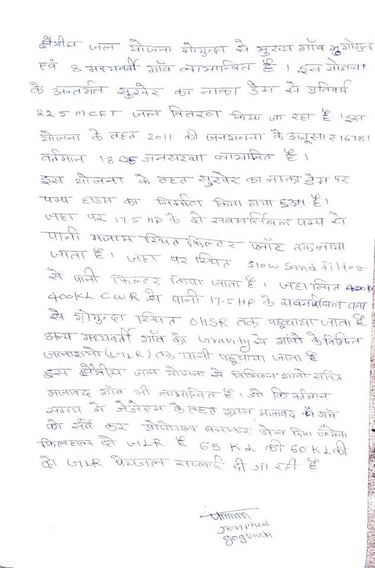 क्षेत्रीय जल योजना गोगुन्दा से मुख्य गाँव गोगुन्दा
एवं 8 मध्यवर्ती गाँव लाभान्वित है । इस योजना
के अन्तर्गत सुरखेर का नाका डेम से प्रतिवर्ष
22.5 MCFT जल वितरण किया जा रहा है । इस
योजना के तहत 2011 की जनगणना के अनुसार 14781
वर्तमान जनसंख्या लाभान्वित है ।
इस योजना के तहत सुरखेर का नाका डेम पर
पम्प हाउस का निर्माण किया गया हुआ है ।
जहां पर 17.5 HP के दो सबमर्सिबल पम्प से
पानी मजाम स्थित फिल्टर प्लांट तक लाया
जाता है । जहां पर स्थित slow sand filter
से पानी फिल्टर किया जाता है । जहां स्थित
400 KL CWR से पानी 17.5 HP के सबमर्सिबल पम्प
से गोगुन्दा स्थित OHSR तक पहुचाया जाता है
अन्य मध्यवर्ती गाँव को Gravity से गांवो के विभिन्न
जलाशयो (GLR) तक पानी पहुचाया जाता है
इस क्षेत्रीय जल योजना से विभिन्न गांवो सहित
मजावद गाँव भी लाभान्वित है । जो कि वर्तमान
समय मे जेजेएम के तहत ग्राम मजावद के गाँव
को सर्वे कर योजना बनाकर भेज दिया जायेगा
फिलहाल दो GLR है 65 KL की 60 KL की
दो GLR पेयजल सप्लाई दी जा रही है
Jen phed
gogunda